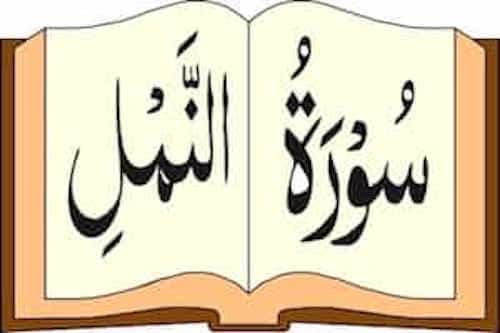 سُوْرَةُ النَّمْلِ